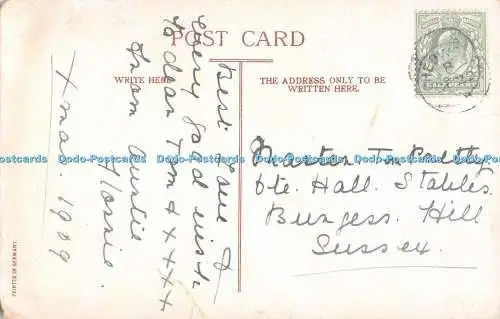 POST CARD
WRITE HERE
THE ADDRESS ONLY TO BE
WRITTEN HERE.
HALF PENNY
Best love &
every good wish
to dear Tom x x x x
from Auntie
Florrie.
Xmas. 1909
Master Tom
Hall. Stables
Burgess. Hill
Sussex.
PRINTED IN GERMANY.
Dodo-Postcards Dodo-Postcards Dodo-Postcards Dodo-Postcards Dodo-Postcards